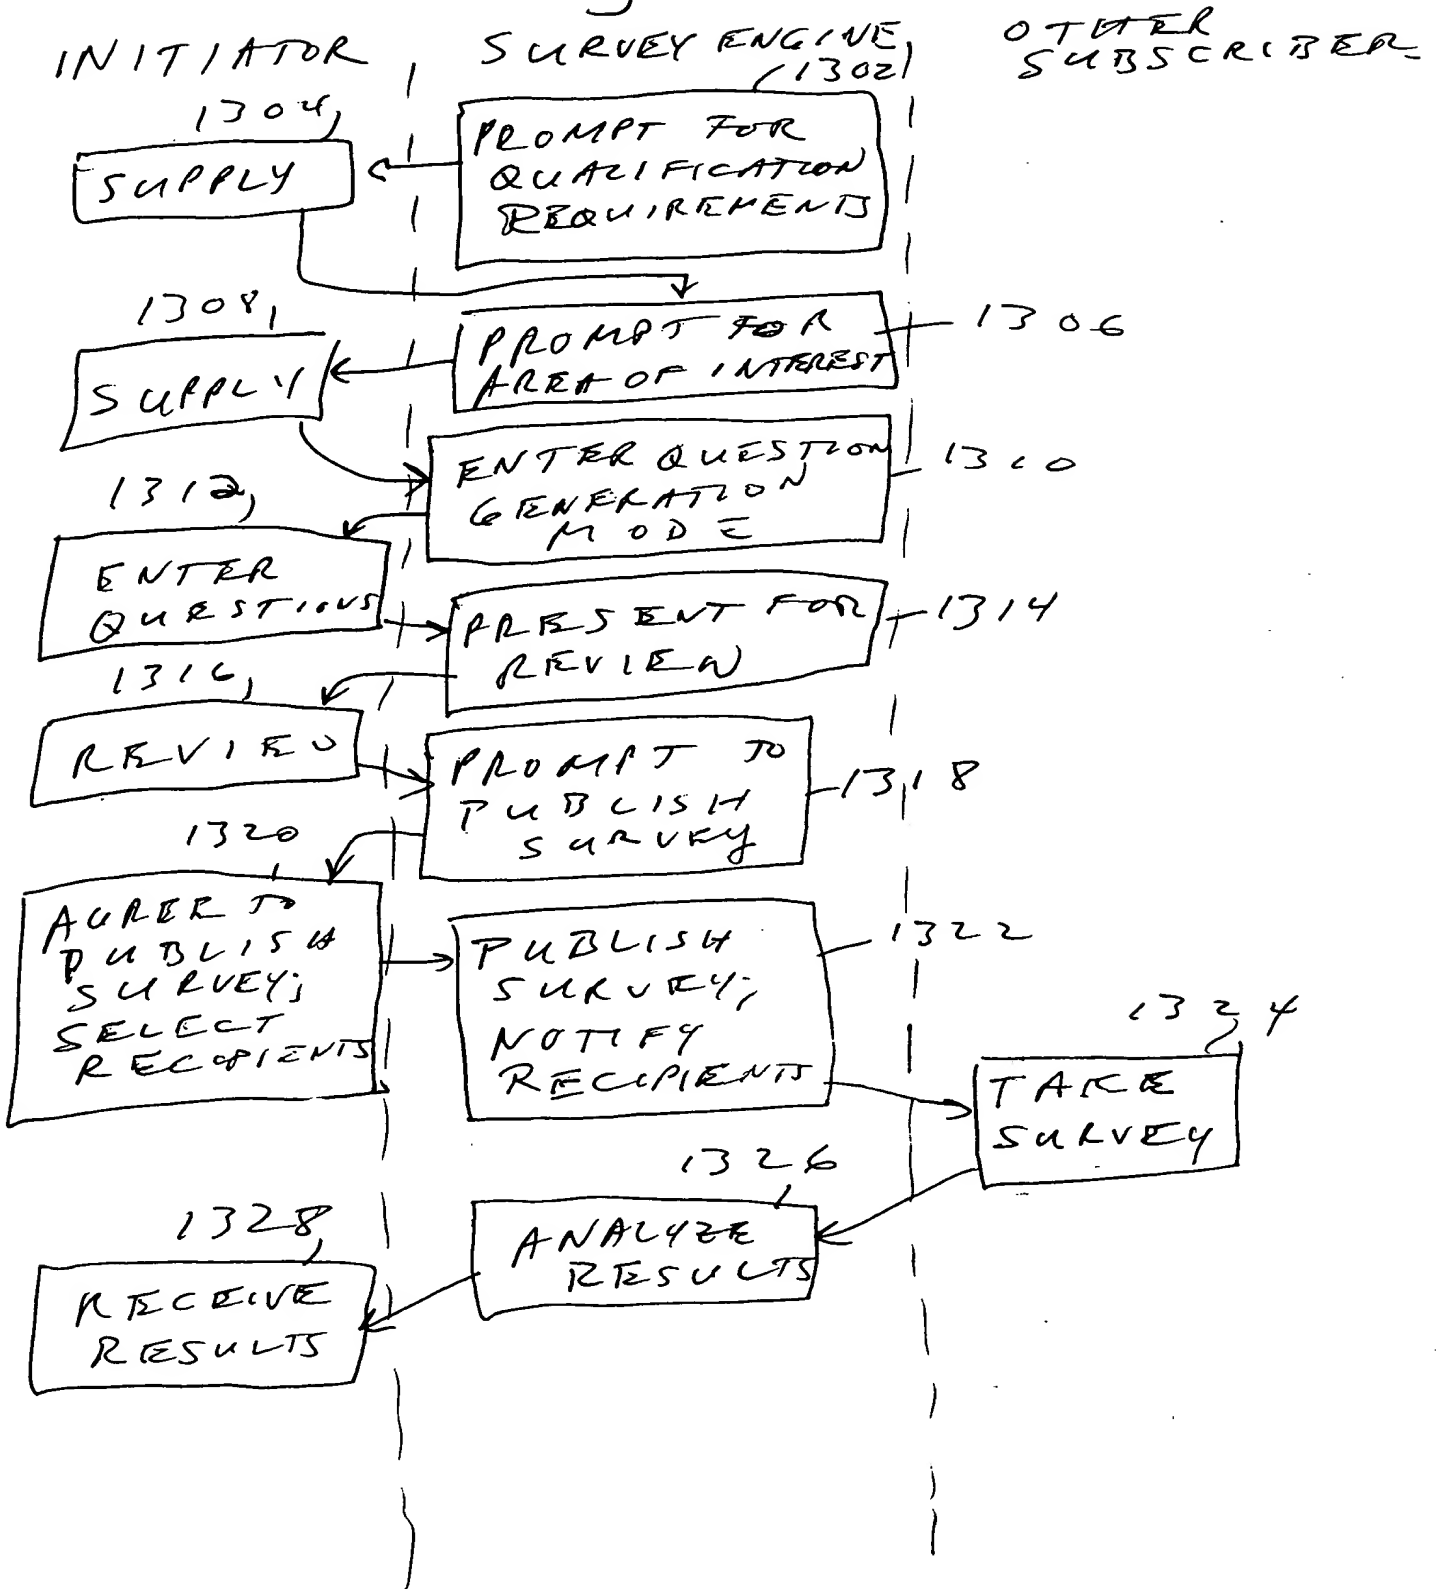 INITIATOR
SURVEY ENGINE
OTHER
SUBSCRIBER
1302
1304
PROMPT FOR
QUALIFICATION
REQUIREMENTS
SUPPLY
1308
1306
PROMPT FOR
AREA OF INTEREST
SUPPLY
1310
ENTER QUESTION
GENERATION
MODE
1312
ENTER
QUESTIONS
1314
PRESENT FOR
REVIEW
1316
REVIEW
PROMPT TO
PUBLISH
SURVEY
1318
1320
AGREE TO
PUBLISH
SURVEY;
SELECT
RECIPIENTS
1322
PUBLISH
SURVEY;
NOTIFY
RECIPIENTS
1324
TAKE
SURVEY
1326
ANALYZE
RESULTS
1328
RECEIVE
RESULTS